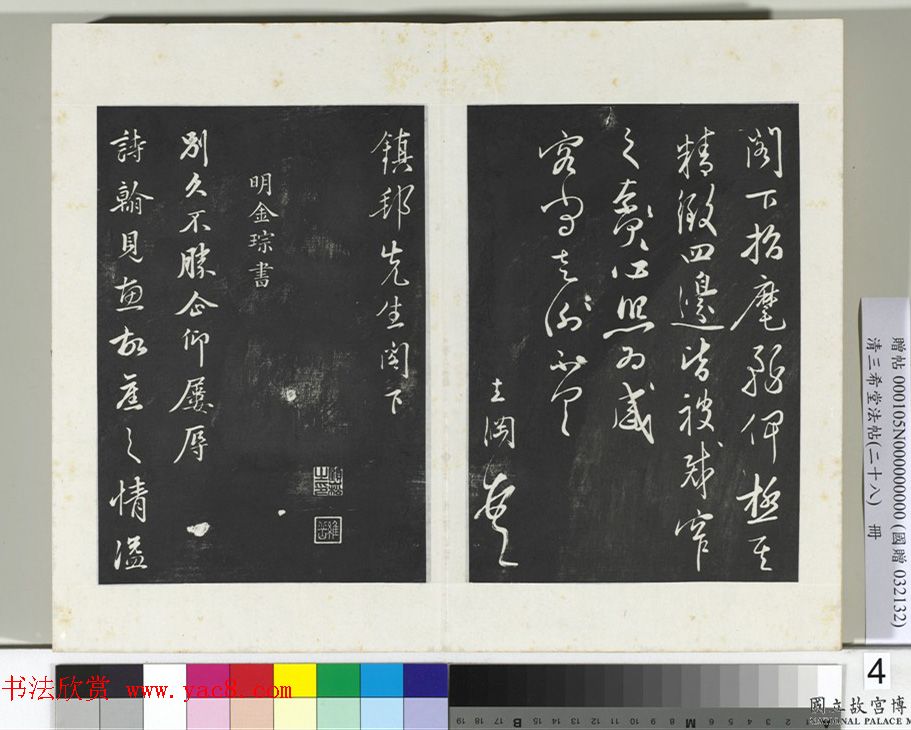 閣下指麾, 郛俾極其
精緻四邊皆被裁窄
之費心照為感
客當走謝不宣
立綱頓
鎮邦先生閣下
明金琮書
別久不勝企仰屢辱
詩翰見惠故舊之情溢
贈帖 000105N000000000 (國贈 032132)
清三希堂法帖(二十八) 冊
4
书法欣赏 www.yac8.com
19 18 17 B 15 14 13 12 11 M 8 7 6 5 4 3 2 1
國立故宮博
NATIONAL PALACE M